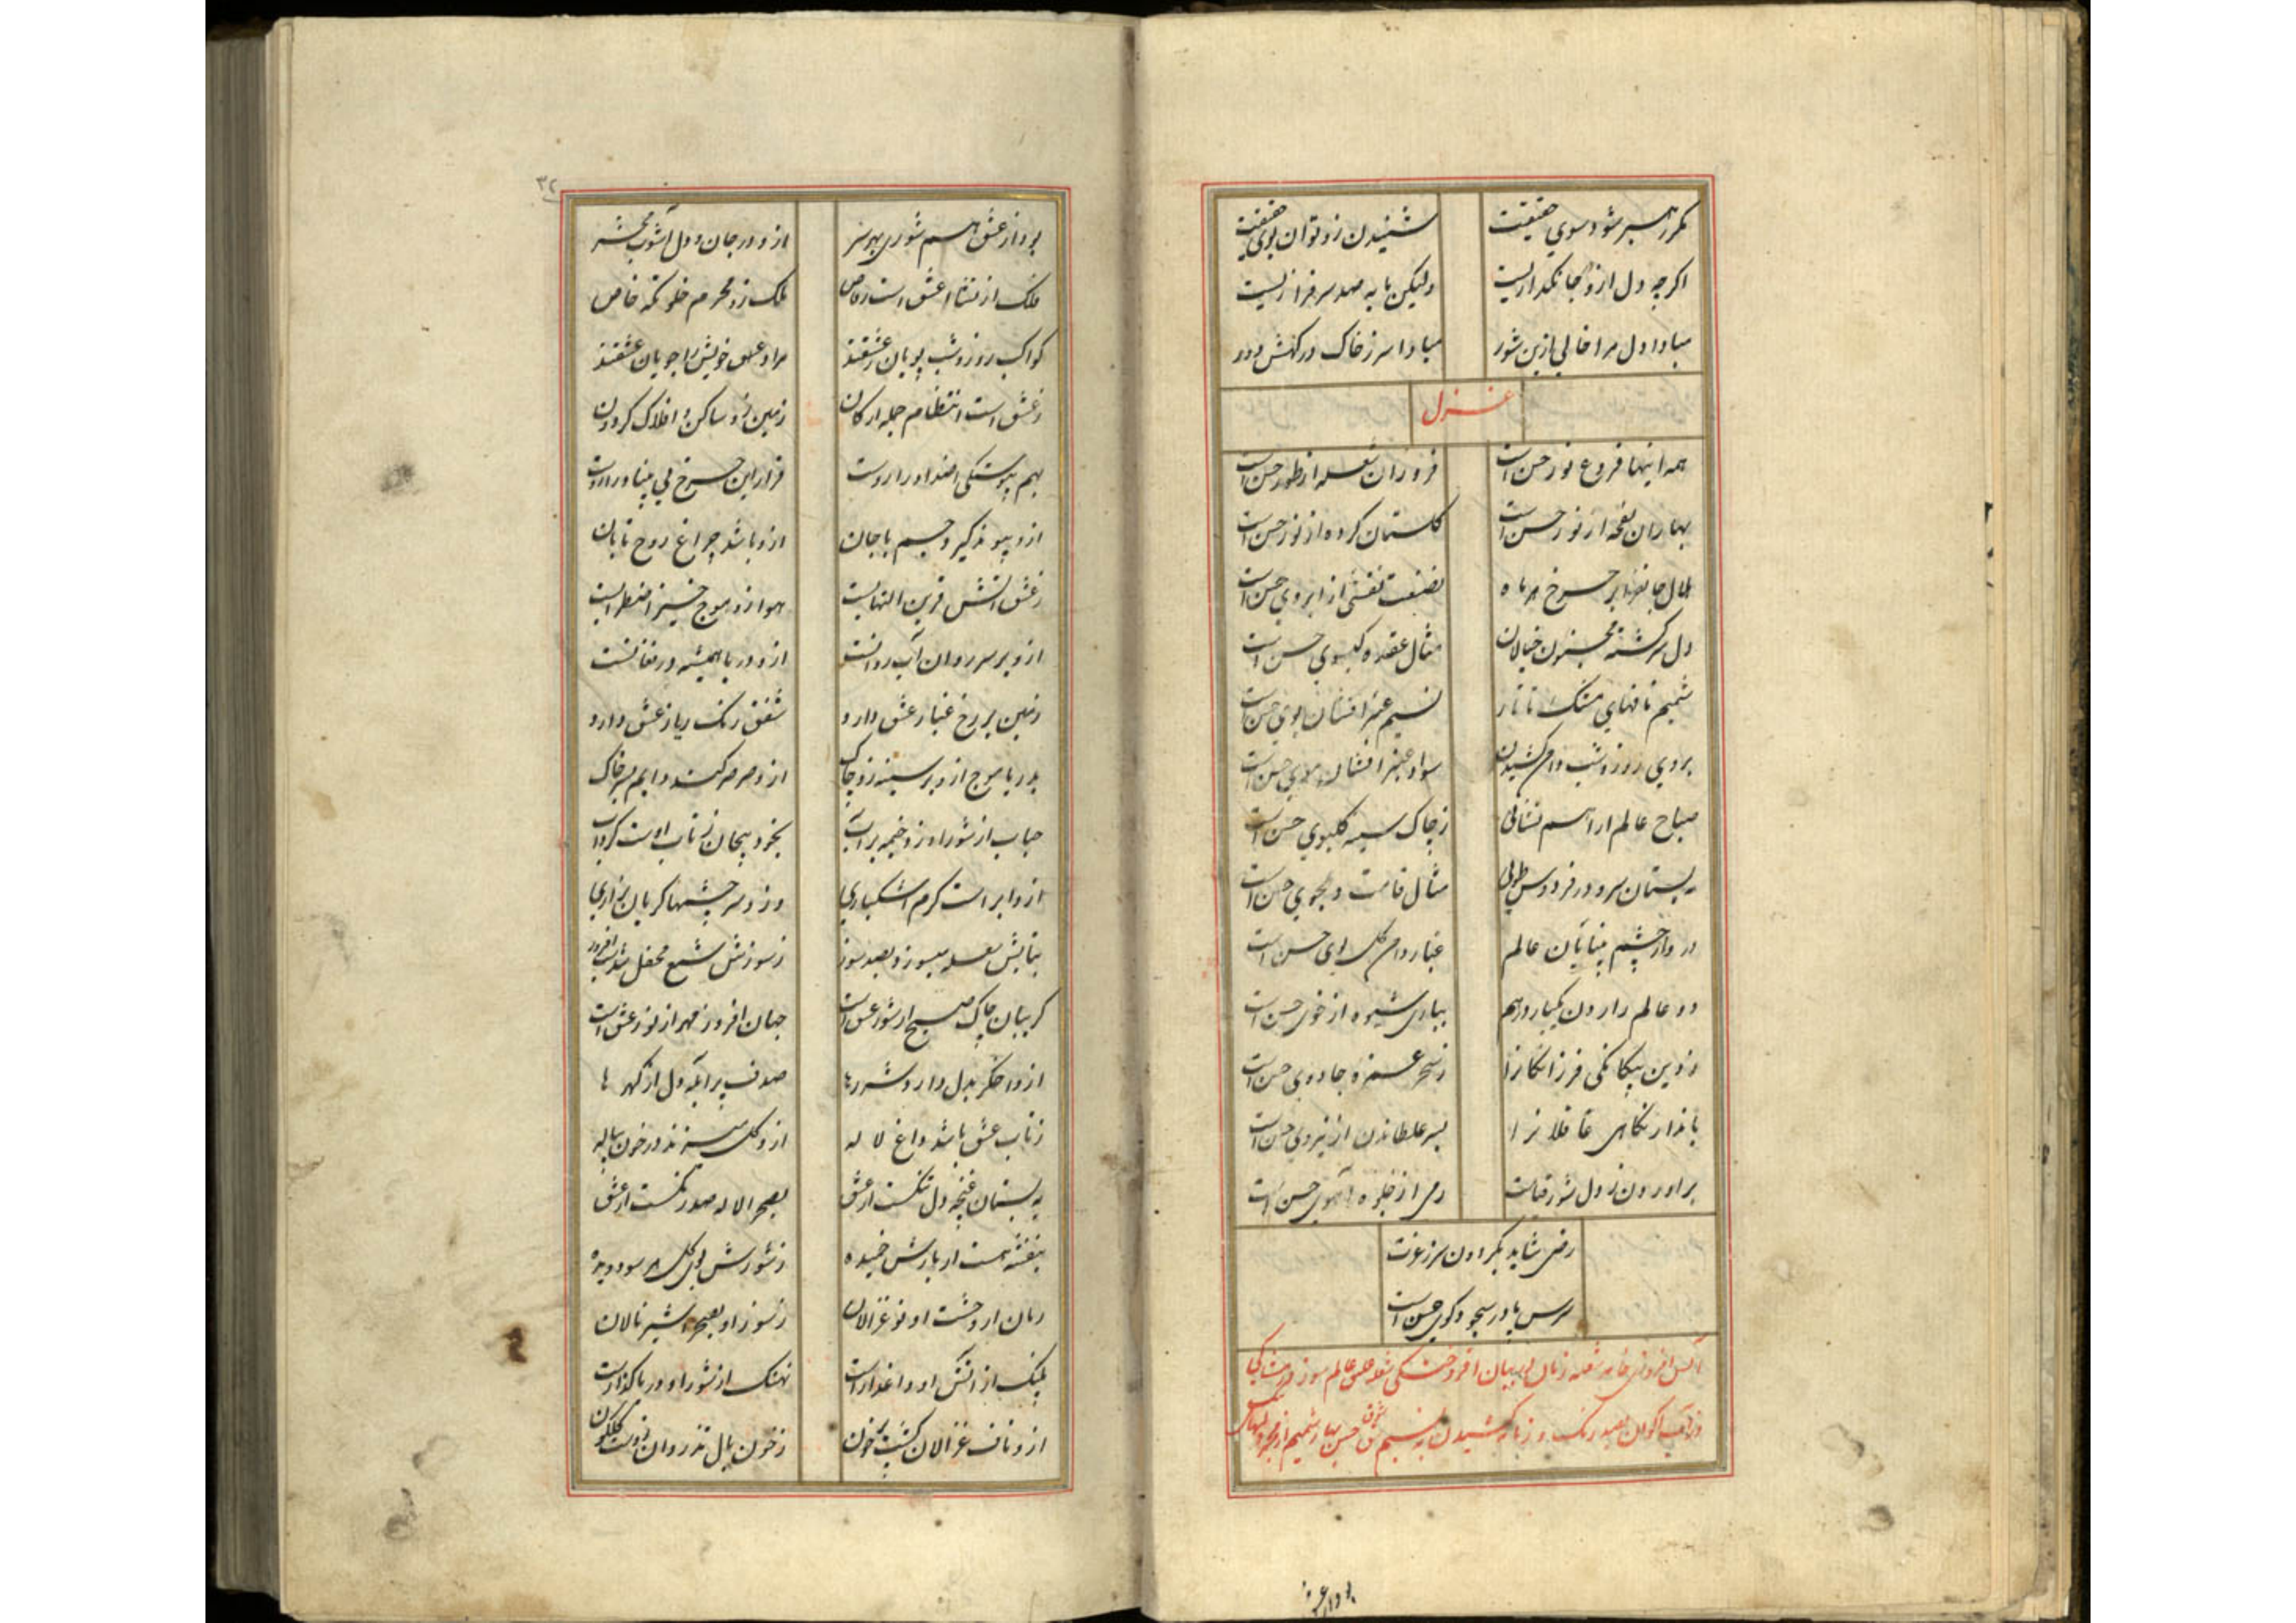 مکرر رهبر شود سوی حقیقت شنیدن زو توان بوی حقیقت
اگرچه دل ازو جانگدازیست ولیکن مایه صد سرفرازیست
مبادا دل مرا خالی ازین شور مبادا سر ز خاک درگهش دور
غزل
همه اینها فروغ نور حسن است فروزان شعله از طور حسن است
بهاران نفحه از نور حسن است گلستان کرده از نور حسن است
هلال جانفزا بر چرخ هر ماه نقشی از ابروی حسن است
دل سرگشته مجنون خیالان مثال عقده گیسوی حسن است
شمیم نافهای مشک تاتار نسیم عنبر افشان بوی حسن است
بروی روز و شب دامن کشیدن سواد عنبر افشان موی حسن است
صباح عالم آرا هم نشانی ز چاک سینه حسن است
به بستان سرو و در فردوس طوبی مثال قامت دلجوی حسن است
در چشم بینایان عالم غبار دامن گل بوی حسن است
دو عالم را زدن یکبار برهم شیوه از خوی حسن است
زدین بیگانگی فرزانگانرا ز سحر غمزه جادوی حسن است
بانداز نگاهی عاقلانرا بسر غلطاندن از نیروی حسن است
برآوردن ز دل شور قیامت رمی از جلوه آهوی حسن است
رضی شاید بگردون سر ز عزت
سرش در سجود کوی حسن است
خامه شعله زبان به بیان افروختگی شعله عشق عالم سوز
بصد رنگ و زبانه کشیدن به نسیم شوق حسن بهار شمیم از
بود از عشق
۳۲
بود از عشق هم شوری بهر سر ازو در جان و دل آشوب محشر
فلک از نشأ عشق است رقاص ملک زو محرم خلوتگه خاص
کواکب روز و شب پویان عشقند مراد خویش را جویان عشقند
ز عشق است انتظام جمله ارکان زمین زو ساکن و افلاک گردون
بهم پیوستگی اضداد را زوست قرار این چرخ بی را زوست
ازو پیوند گیرد جسم با جان ازو باشد چراغ روح تابان
ز عشق آتش قرین التهابست هوا زو موج خیز اضطرابست
ازو بر سر روان آب روانست ازو دریا همیشه در فغانست
زمین بر رخ غبار عشق دارد شفق رنگ از عشق دارد
بدریا موج ازو بر سینه زد چاک ازو صرصر کند دایم بسر خاک
حباب از شور او زد خیمه بر آب بخود پیچان ز تاب اوست گرداب
ازو ابر است گرم اشکباری وزو سرچشمها گریان بزاری
بتابش شعله میسوزد بصد سوز ز سوزش شمع محفل شد شب افروز
گریبان چاک صبح از شور عشق است جهان افروز مهر از نور عشق است
ازو اخگر بدل دارد شررها صدف پر آبله دل از گهرها
ز تاب عشق باشد داغ لاله ازو گل میزند در خون پیاله
به بستان غنچه دل تنگست از عشق بصحرا لاله صد رنگست از عشق
بنفشه هست از بارش خمیده ز شورش بوی گل هر سو دویده
رمان از وحشت او نو غزالان ز سوز او بصحرا شیر نالان
پلنگ از آتش او داغدار است نهنگ از شور او دریا گذار است
ازو ناف غزالان گشته پر خون ز خون بال تذروان زوست گلگون